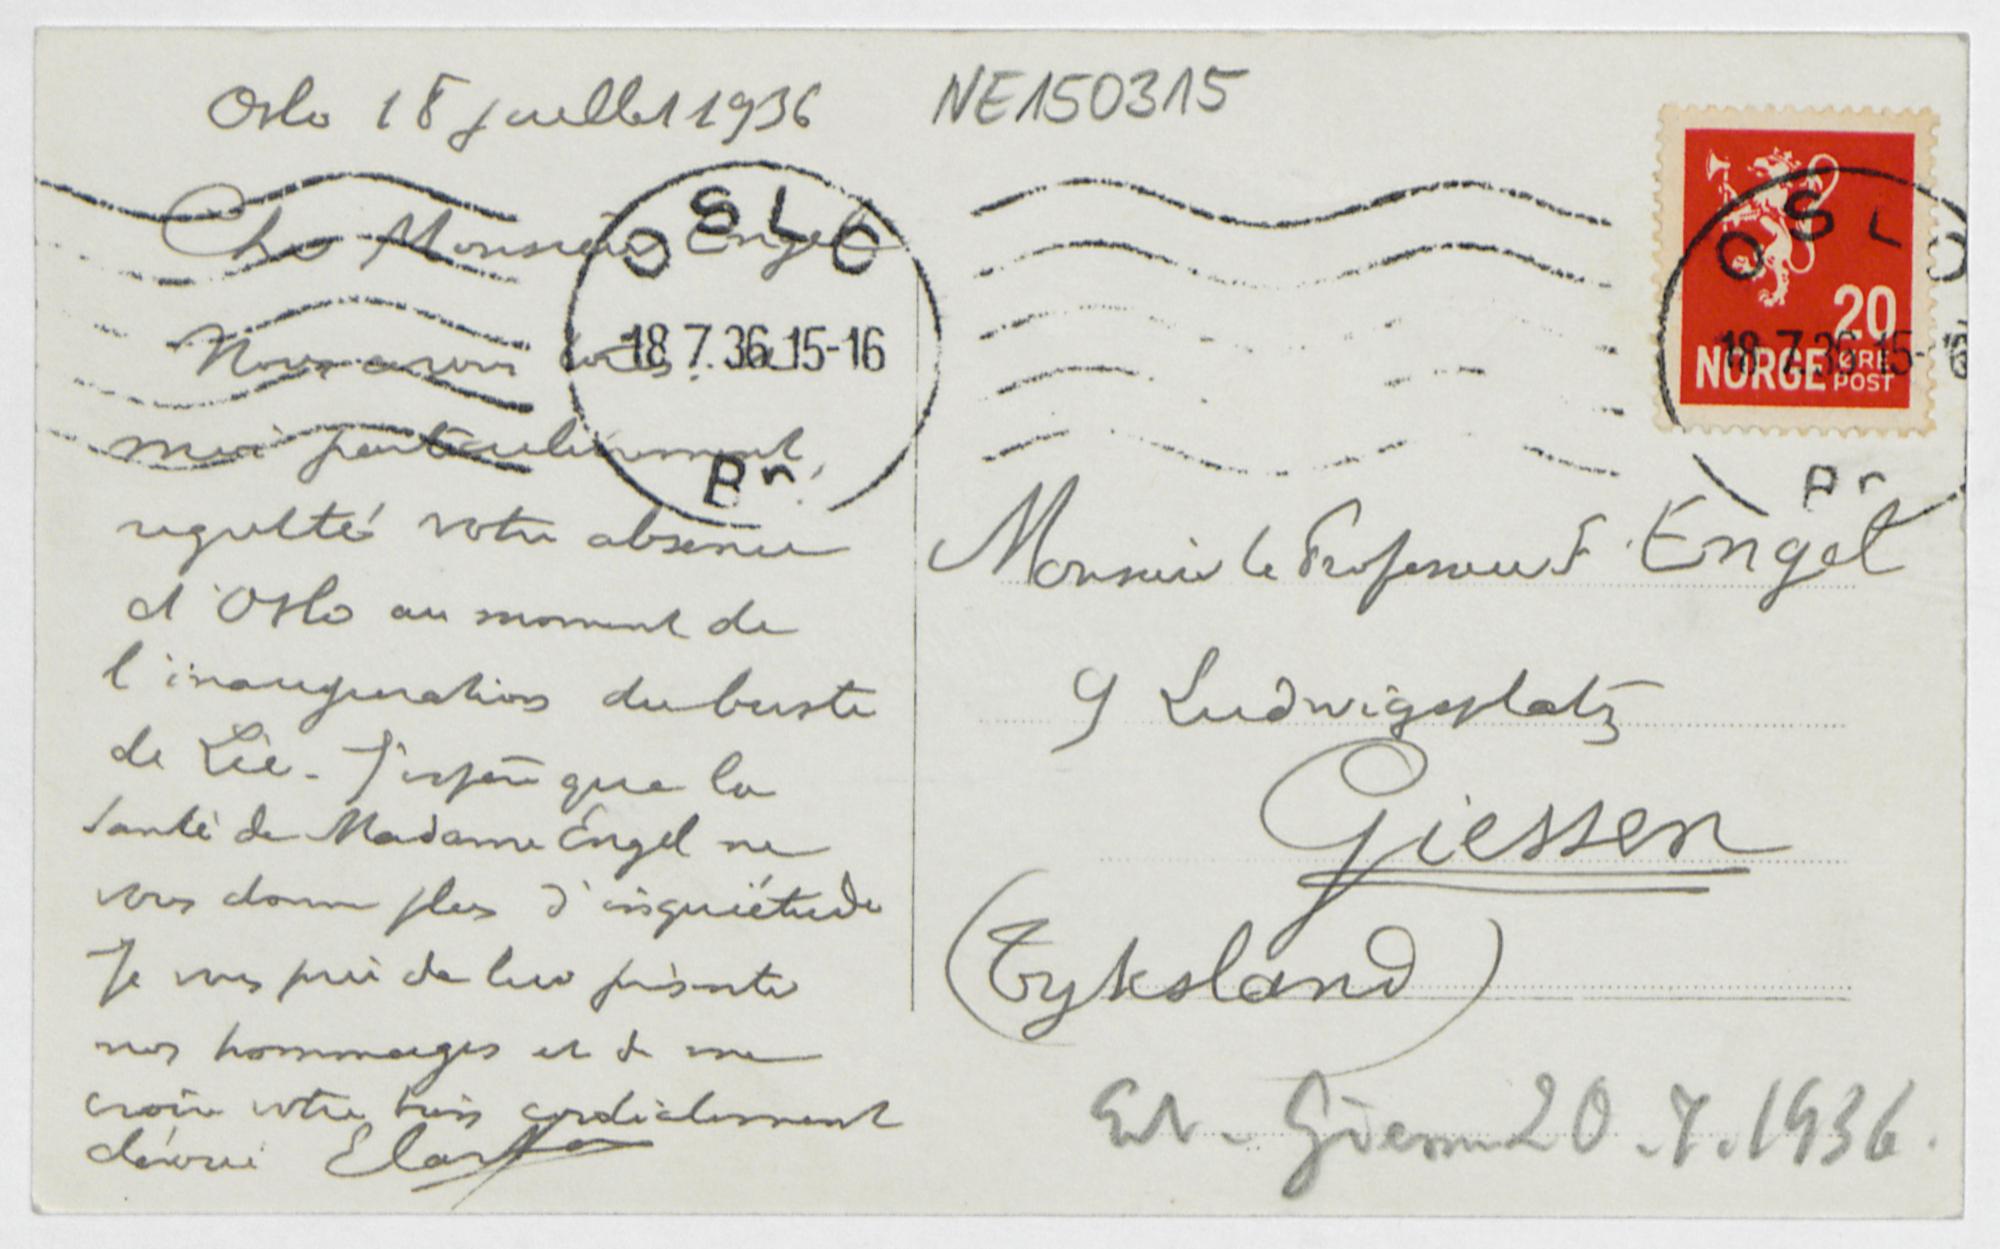 Oslo 18 juillet 1936
NE150315
Cher Monsieur Engel
Nous avons tous, et
moi particulièrement,
regretté votre absence
d'Oslo au moment de
l'inauguration du buste
de Lie. J'espère que la
santé de Madame Engel ne
vous donne plus d'inquiétude
Je vous prie de lui présenter
nos hommages et de me
croire votre très cordialement
dévoué
OSLO
18.7.36.15-16
Br.
OSLO
18.7.36.15-16
Br
20
NORGE ØRE
POST
Monsieur le Professeur F. Engel
9 Ludwigsplatz
Giessen
(Tyksland)
Giessen 20.7.1936.